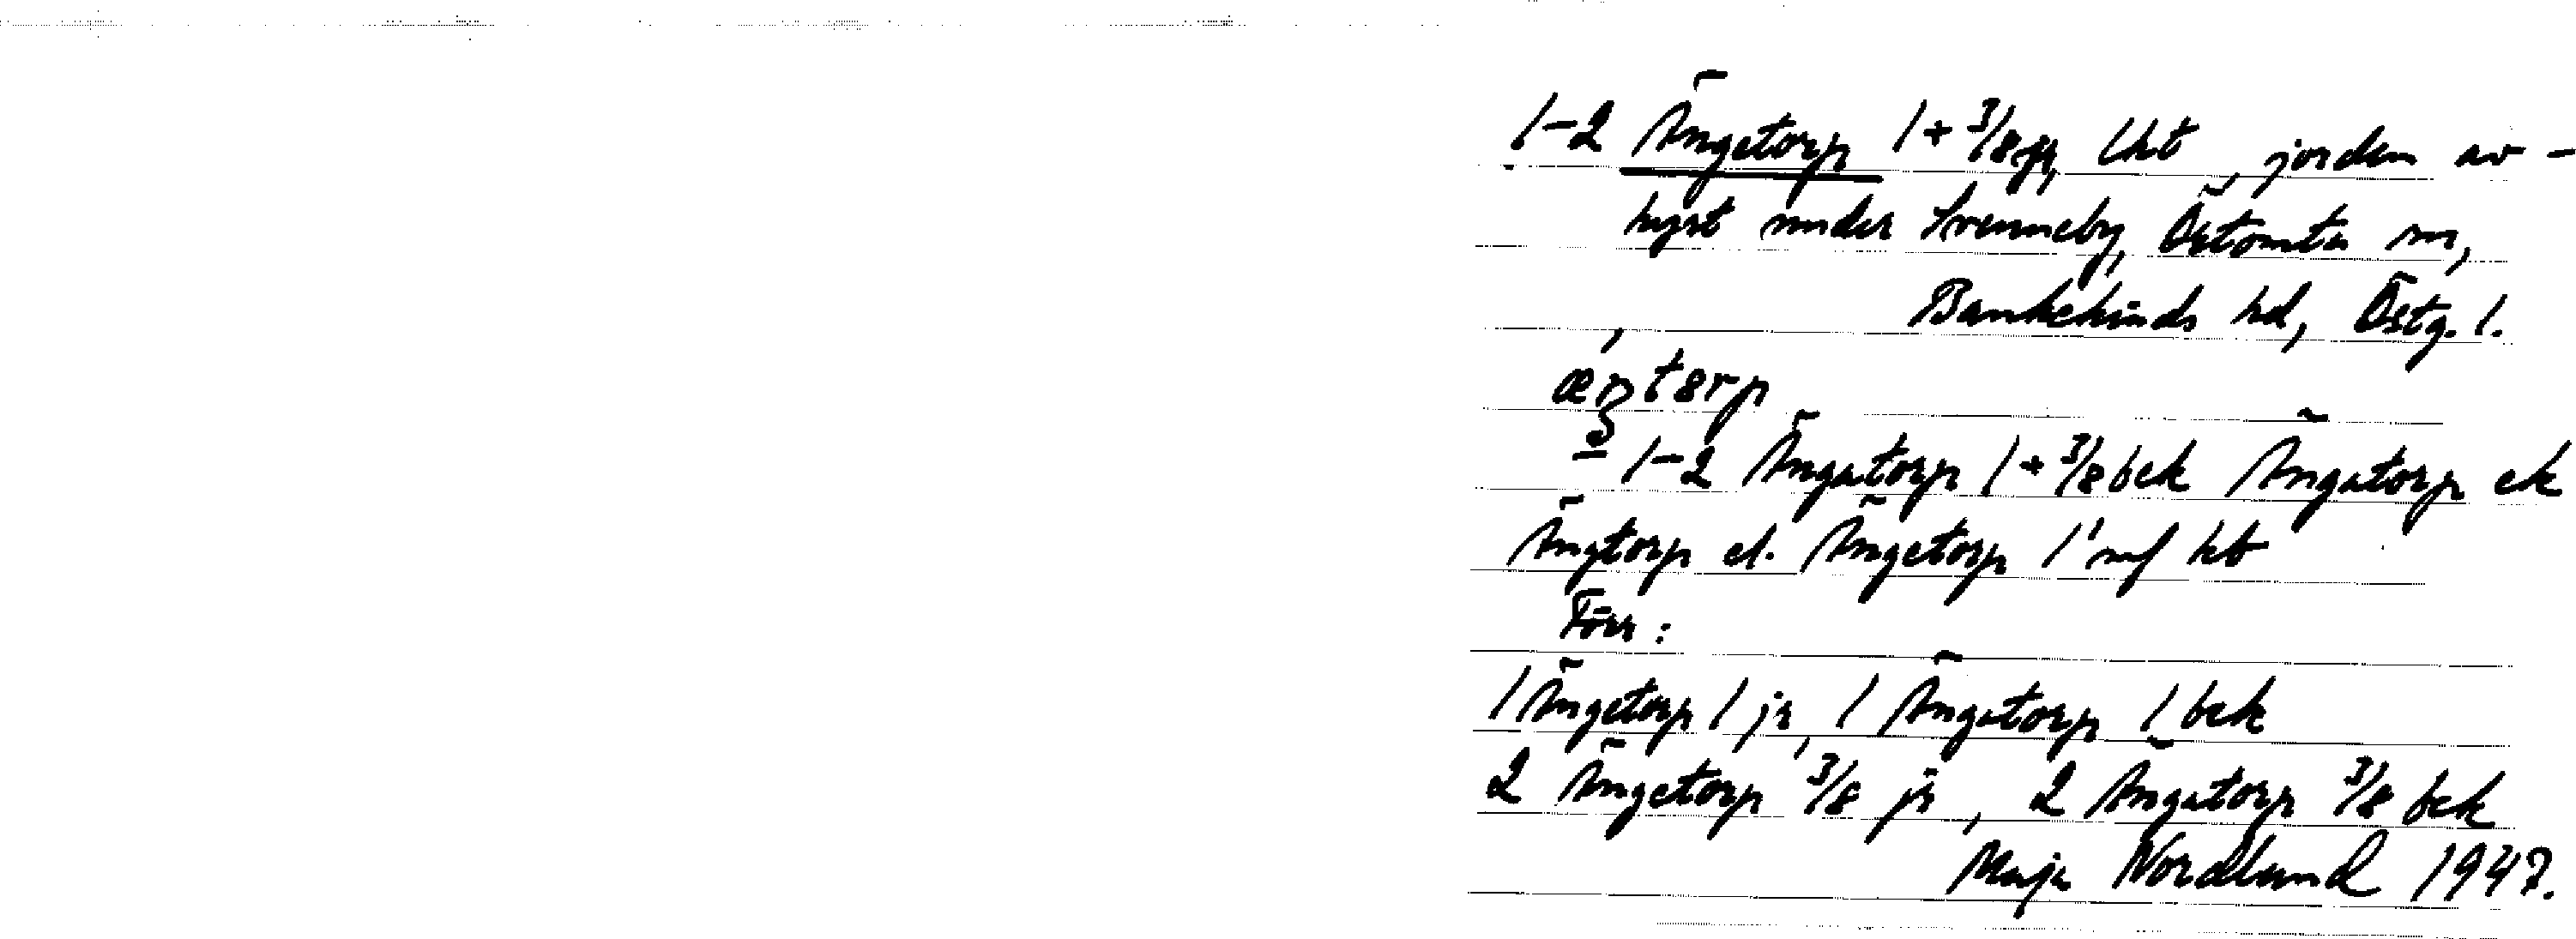 1-2 Ängetorp 1+3/8 jr, lht, jorden av-
hyst under Svenneby, Östomta m,
Bankekinds hd, Östg. l.
= 1-2 Ängatorp 1+3/8 bek Ängatorp ek
Ängtorp el. Ängetorp 1 mf kb
Förr:
1 Ängetorp 1 jr, 1 Ängatorp 1 bek
2 Ängetorp 3/8 jr, 2 Ängatorp 3/8 bek
Maja Nordlund 1947.